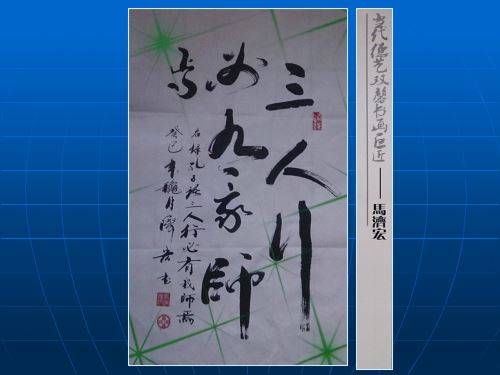 三人行
必有我師
焉
右錄孔子語三人行必有我師焉
癸巳年穐月濟宏书
当代德艺双馨书画巨匠——馬濟宏